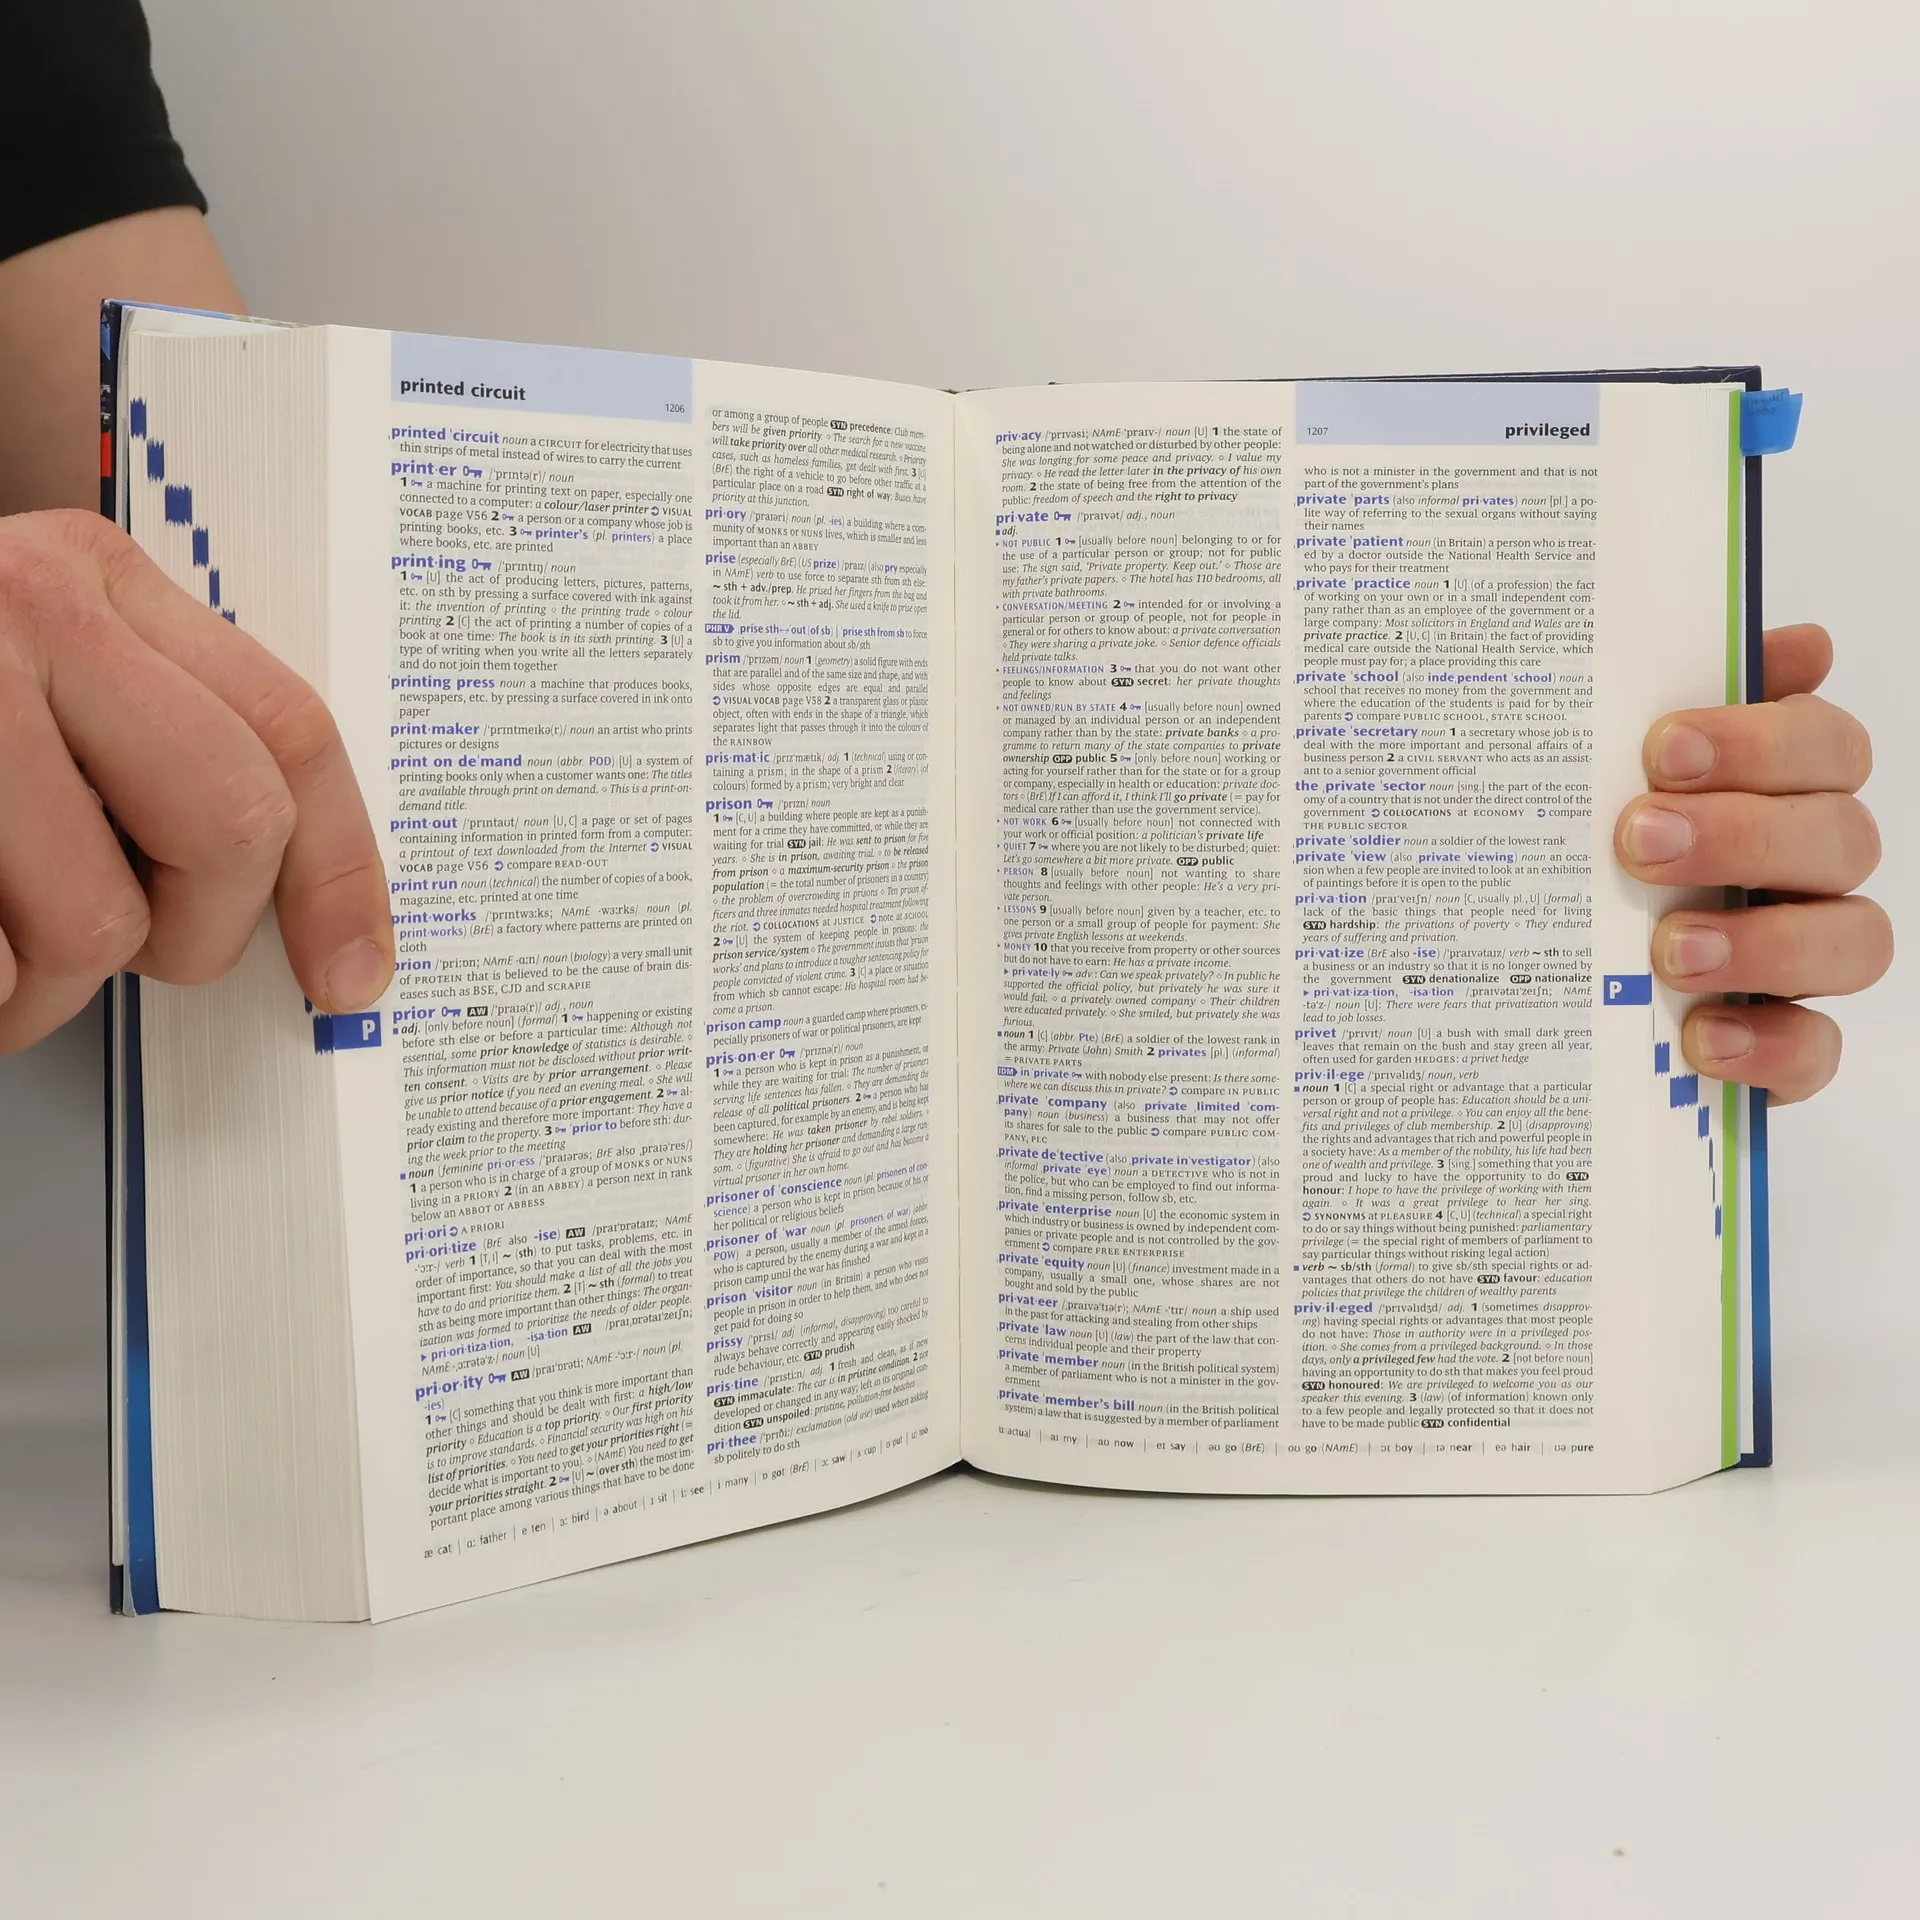 printed circuit
1206
printed circuit noun a CIRCUIT for electricity that uses
thin strips of metal instead of wires to carry the current
print·er /ˈprɪntə(r)/ noun
1 a machine for printing text on paper, especially one
connected to a computer: a colour/laser printer VISUAL
VOCAB page V56 2 a person or a company whose job is
printing books, etc. 3 printer's (pl. printers) a place
where books, etc. are printed
print·ing /ˈprɪntɪŋ/ noun
1 [U] the act of producing letters, pictures, patterns,
etc. on sth by pressing a surface covered with ink against
it: the invention of printing ◇ the printing trade ◇ colour
printing 2 [C] the act of printing a number of copies of a
book at one time: The book is in its sixth printing. 3 [U] a
type of writing when you write all the letters separately
and do not join them together
ˈprinting press noun a machine that produces books,
newspapers, etc. by pressing a surface covered in ink onto
paper
print·maker /ˈprɪntmeɪkə(r)/ noun an artist who prints
pictures or designs
ˌprint on deˈmand noun (abbr. POD) [U] a system of
printing books only when a customer wants one: The titles
are available through print on demand. ◇ This is a print-on-
demand title.
print·out /ˈprɪntaʊt/ noun [U, C] a page or set of pages
containing information in printed form from a computer:
a printout of text downloaded from the Internet VISUAL
VOCAB page V56 compare READ-OUT
ˈprint run noun (technical) the number of copies of a book,
magazine, etc. printed at one time
print·works /ˈprɪntwɜːks; NAmE -wɜːrks/ noun (pl.
print·works) (BrE) a factory where patterns are printed on
cloth
prion /ˈpriːɒn; NAmE -ɑːn/ noun (biology) a very small unit
of PROTEIN that is believed to be the cause of brain dis-
eases such as BSE, CJD and SCRAPIE
prior AW /ˈpraɪə(r)/ adj., noun
P
adj. [only before noun] (formal) 1 happening or existing
before sth else or before a particular time: Although not
essential, some prior knowledge of statistics is desirable. ◇
This information must not be disclosed without prior writ-
ten consent. ◇ Visits are by prior arrangement. ◇ Please
give us prior notice if you need an evening meal. ◇ She will
be unable to attend because of a prior engagement. 2 al-
ready existing and therefore more important: They have a
prior claim to the property. 3 ˈprior to before sth: dur-
ing the week prior to the meeting
noun (feminine pri·or·ess /ˈpraɪərəs; BrE also ˌpraɪəˈres/)
1 a person who is in charge of a group of MONKS or NUNS
living in a PRIORY 2 (in an ABBEY) a person next in rank
below an ABBOT or ABBESS
pri·ori A PRIORI
pri·ori·tize (BrE also -ise) AW /praɪˈɒrətaɪz; NAmE
-ˈɔːr-/ verb 1 [T, I] ~ (sth) to put tasks, problems, etc. in
order of importance, so that you can deal with the most
important first: You should make a list of all the jobs you
have to do and prioritize them. 2 [T] ~ sth (formal) to treat
sth as being more important than other things: The organ-
ization was formed to prioritize the needs of older people.
▸ pri·ori·tiza·tion, -isa·tion AW /praɪˌɒrətaɪˈzeɪʃn;
NAmE -ˌɔːrətəˈz-/ noun [U]
pri·or·ity AW /praɪˈɒrəti; NAmE -ˈɔːr-/ noun (pl.
-ies)
1 [C] something that you think is more important than
other things and should be dealt with first: a high/low
priority ◇ Education is a top priority. ◇ Our first priority
is to improve standards. ◇ Financial security was high on his
list of priorities. ◇ You need to get your priorities right (=
decide what is important to you). ◇ (NAmE) You need to get
your priorities straight. 2 [U] ~ (over sth) the most im-
portant place among various things that have to be done
or among a group of people SYN precedence: Club mem-
bers will be given priority. ◇ The search for a new vaccine
will take priority over all other medical research. ◇ Priority
cases, such as homeless families, get dealt with first. 3 [U]
(BrE) the right of a vehicle to go before other traffic at a
particular place on a road SYN right of way: Buses have
priority at this junction.
pri·ory /ˈpraɪəri/ noun (pl. -ies) a building where a com-
munity of MONKS or NUNS lives, which is smaller and less
important than an ABBEY
prise (especially BrE) (US prize) /praɪz/ (also pry especially
in NAmE) verb to use force to separate sth from sth else:
~ sth + adv./prep. He prised her fingers from the bag and
took it from her. ◇ ~ sth + adj. She used a knife to prise open
the lid.
PHR V ˌprise sth↔ˈout (of sb) | ˈprise sth from sb to force
sb to give you information about sb/sth
prism /ˈprɪzəm/ noun 1 (geometry) a solid figure with ends
that are parallel and of the same size and shape, and with
sides whose opposite edges are equal and parallel
VISUAL VOCAB page V58 2 a transparent glass or plastic
object, often with ends in the shape of a triangle, which
separates light that passes through it into the colours of
the RAINBOW
pris·mat·ic /prɪzˈmætɪk/ adj. 1 (technical) using or con-
taining a prism; in the shape of a prism 2 (literary) (of
colours) formed by a prism; very bright and clear
prison /ˈprɪzn/ noun
1 [C, U] a building where people are kept as a punish-
ment for a crime they have committed, or while they are
waiting for trial SYN jail: He was sent to prison for five
years. ◇ She is in prison, awaiting trial. ◇ to be released
from prison ◇ a maximum-security prison ◇ the prison
population (= the total number of prisoners in a country)
◇ the problem of overcrowding in prisons ◇ Ten prison of-
ficers and three inmates needed hospital treatment following
the riot. COLLOCATIONS at JUSTICE note at SCHOOL
2 [U] the system of keeping people in prisons: the
prison service/system ◇ The government insists that 'prison
works' and plans to introduce a tougher sentencing policy for
people convicted of violent crime. 3 [C] a place or situation
from which sb cannot escape: His hospital room had be-
come a prison.
ˈprison camp noun a guarded camp where prisoners, es-
pecially prisoners of war or political prisoners, are kept
pris·on·er /ˈprɪznə(r)/ noun
1 a person who is kept in prison as a punishment, or
while they are waiting for trial: The number of prisoners
serving life sentences has fallen. ◇ They are demanding the
release of all political prisoners. 2 a person who has
been captured, for example by an enemy, and is being kept
somewhere: He was taken prisoner by rebel soldiers. ◇
They are holding her prisoner and demanding a large ran-
som. ◇ (figurative) She is afraid to go out and has become a
virtual prisoner in her own home.
ˌprisoner of ˈconscience noun (pl. prisoners of con-
science) a person who is kept in prison because of his or
her political or religious beliefs
ˌprisoner of ˈwar noun (pl. prisoners of war) (abbr.
POW) a person, usually a member of the armed forces,
who is captured by the enemy during a war and kept in a
prison camp until the war has finished
ˌprison ˈvisitor noun (in Britain) a person who visits
people in prison in order to help them, and who does not
get paid for doing so
prissy /ˈprɪsi/ adj. (informal, disapproving) too careful to
always behave correctly and appearing easily shocked by
rude behaviour, etc. SYN prudish
pris·tine /ˈprɪstiːn/ adj. 1 fresh and clean, as if new
SYN immaculate: The car is in pristine condition. 2 not
developed or changed in any way; left in its original con-
dition SYN unspoiled: pristine, pollution-free beaches
pri·thee /ˈprɪðiː/ exclamation (old use) used when asking
sb politely to do sth
æ cat | ɑː father | e ten | ɜː bird | ə about | ɪ sit | iː see | i many | ɒ got (BrE) | ɔː saw | ʌ cup | ʊ put | uː too
1207
privileged
priv·acy /ˈprɪvəsi; NAmE ˈpraɪv-/ noun [U] 1 the state of
being alone and not watched or disturbed by other people:
She was longing for some peace and privacy. ◇ I value my
privacy. ◇ He read the letter later in the privacy of his own
room. 2 the state of being free from the attention of the
public: freedom of speech and the right to privacy
pri·vate /ˈpraɪvət/ adj., noun
adj.
▸ NOT PUBLIC 1 [usually before noun] belonging to or for
the use of a particular person or group; not for public
use: The sign said, 'Private property. Keep out.' ◇ Those are
my father's private papers. ◇ The hotel has 110 bedrooms, all
with private bathrooms.
▸ CONVERSATION/MEETING 2 intended for or involving a
particular person or group of people, not for people in
general or for others to know about: a private conversation
◇ They were sharing a private joke. ◇ Senior defence officials
held private talks.
▸ FEELINGS/INFORMATION 3 that you do not want other
people to know about SYN secret: her private thoughts
and feelings
▸ NOT OWNED/RUN BY STATE 4 [usually before noun] owned
or managed by an individual person or an independent
company rather than by the state: private banks ◇ a pro-
gramme to return many of the state companies to private
ownership OPP public 5 [only before noun] working or
acting for yourself rather than for the state or for a group
or company, especially in health or education: private doc-
tors ◇ (BrE) If I can afford it, I think I'll go private (= pay for
medical care rather than use the government service).
▸ NOT WORK 6 [usually before noun] not connected with
your work or official position: a politician's private life
▸ QUIET 7 where you are not likely to be disturbed; quiet:
Let's go somewhere a bit more private. OPP public
▸ PERSON 8 [usually before noun] not wanting to share
thoughts and feelings with other people: He's a very pri-
vate person.
▸ LESSONS 9 [usually before noun] given by a teacher, etc. to
one person or a small group of people for payment: She
gives private English lessons at weekends.
▸ MONEY 10 that you receive from property or other sources
but do not have to earn: He has a private income.
▸ pri·vate·ly adv.: Can we speak privately? ◇ In public he
supported the official policy, but privately he was sure it
would fail. ◇ a privately owned company ◇ Their children
were educated privately. ◇ She smiled, but privately she was
furious.
noun 1 [C] (abbr. Pte) (BrE) a soldier of the lowest rank in
the army: Private (John) Smith 2 privates [pl.] (informal)
= PRIVATE PARTS
IDM in ˈprivate with nobody else present: Is there some-
where we can discuss this in private? compare IN PUBLIC
ˌprivate ˈcompany (also ˌprivate ˌlimited ˈcom-
pany) noun (business) a business that may not offer
its shares for sale to the public compare PUBLIC COM-
PANY, PLC
ˌprivate deˈtective (also ˌprivate inˈvestigator) (also
informal ˌprivate ˈeye) noun a DETECTIVE who is not in
the police, but who can be employed to find out informa-
tion, find a missing person, follow sb, etc.
ˌprivate ˈenterprise noun [U] the economic system in
which industry or business is owned by independent com-
panies or private people and is not controlled by the gov-
ernment compare FREE ENTERPRISE
ˌprivate ˈequity noun [U] (finance) investment made in a
company, usually a small one, whose shares are not
bought and sold by the public
pri·vat·eer /ˌpraɪvəˈtɪə(r); NAmE -ˈtɪr/ noun a ship used
in the past for attacking and stealing from other ships
ˌprivate ˈlaw noun [U] (law) the part of the law that con-
cerns individual people and their property
ˌprivate ˈmember noun (in the British political system)
a member of parliament who is not a minister in the gov-
ernment
ˌprivate ˈmember's bill noun (in the British political
system) a law that is suggested by a member of parliament
who is not a minister in the government and that is not
part of the government's plans
ˌprivate ˈparts (also informal pri·vates) noun [pl.] a po-
lite way of referring to the sexual organs without saying
their names
ˌprivate ˈpatient noun (in Britain) a person who is treat-
ed by a doctor outside the National Health Service and
who pays for their treatment
ˌprivate ˈpractice noun 1 [U] (of a profession) the fact
of working on your own or in a small independent com-
pany rather than as an employee of the government or a
large company: Most solicitors in England and Wales are in
private practice. 2 [U, C] (in Britain) the fact of providing
medical care outside the National Health Service, which
people must pay for; a place providing this care
ˌprivate ˈschool (also indeˌpendent ˈschool) noun a
school that receives no money from the government and
where the education of the students is paid for by their
parents compare PUBLIC SCHOOL, STATE SCHOOL
ˌprivate ˈsecretary noun 1 a secretary whose job is to
deal with the more important and personal affairs of a
business person 2 a CIVIL SERVANT who acts as an assist-
ant to a senior government official
the ˌprivate ˈsector noun [sing.] the part of the econ-
omy of a country that is not under the direct control of the
government COLLOCATIONS at ECONOMY compare
THE PUBLIC SECTOR
ˌprivate ˈsoldier noun a soldier of the lowest rank
ˌprivate ˈview (also ˌprivate ˈviewing) noun an occa-
sion when a few people are invited to look at an exhibition
of paintings before it is open to the public
pri·va·tion /praɪˈveɪʃn/ noun [C, usually pl., U] (formal) a
lack of the basic things that people need for living
SYN hardship: the privations of poverty ◇ They endured
years of suffering and privation.
pri·vat·ize (BrE also -ise) /ˈpraɪvətaɪz/ verb ~ sth to sell
a business or an industry so that it is no longer owned by
the government SYN denationalize OPP nationalize
▸ pri·vat·iza·tion, -isa·tion /ˌpraɪvətaɪˈzeɪʃn; NAmE
-təˈz-/ noun [U]: There were fears that privatization would
lead to job losses.
P
privet /ˈprɪvɪt/ noun [U] a bush with small dark green
leaves that remain on the bush and stay green all year,
often used for garden HEDGES: a privet hedge
priv·il·ege /ˈprɪvəlɪdʒ/ noun, verb
noun 1 [C] a special right or advantage that a particular
person or group of people has: Education should be a uni-
versal right and not a privilege. ◇ You can enjoy all the bene-
fits and privileges of club membership. 2 [U] (disapproving)
the rights and advantages that rich and powerful people in
a society have: As a member of the nobility, his life had been
one of wealth and privilege. 3 [sing.] something that you are
proud and lucky to have the opportunity to do SYN
honour: I hope to have the privilege of working with them
again. ◇ It was a great privilege to hear her sing.
SYNONYMS at PLEASURE 4 [C, U] (technical) a special right
to do or say things without being punished: parliamentary
privilege (= the special right of members of parliament to
say particular things without risking legal action)
verb ~ sb/sth (formal) to give sb/sth special rights or ad-
vantages that others do not have SYN favour: education
policies that privilege the children of wealthy parents
priv·il·eged /ˈprɪvəlɪdʒd/ adj. 1 (sometimes disapprov-
ing) having special rights or advantages that most people
do not have: Those in authority were in a privileged pos-
ition. ◇ She comes from a privileged background. ◇ In those
days, only a privileged few had the vote. 2 [not before noun]
having an opportunity to do sth that makes you feel proud
SYN honoured: We are privileged to welcome you as our
speaker this evening. 3 (law) (of information) known only
to a few people and legally protected so that it does not
have to be made public SYN confidential
u actual | aɪ my | aʊ now | eɪ say | əʊ go (BrE) | oʊ go (NAmE) | ɔɪ boy | ɪə near | eə hair | ʊə pure